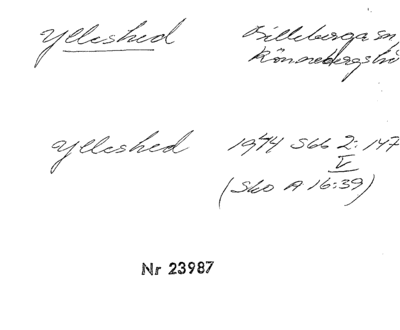 Ylleshed Billeberga sn,
Rönnebergs hd
Ylleshed 1944 S66 2:147
V
(Sko A 16:39)
Nr 23987